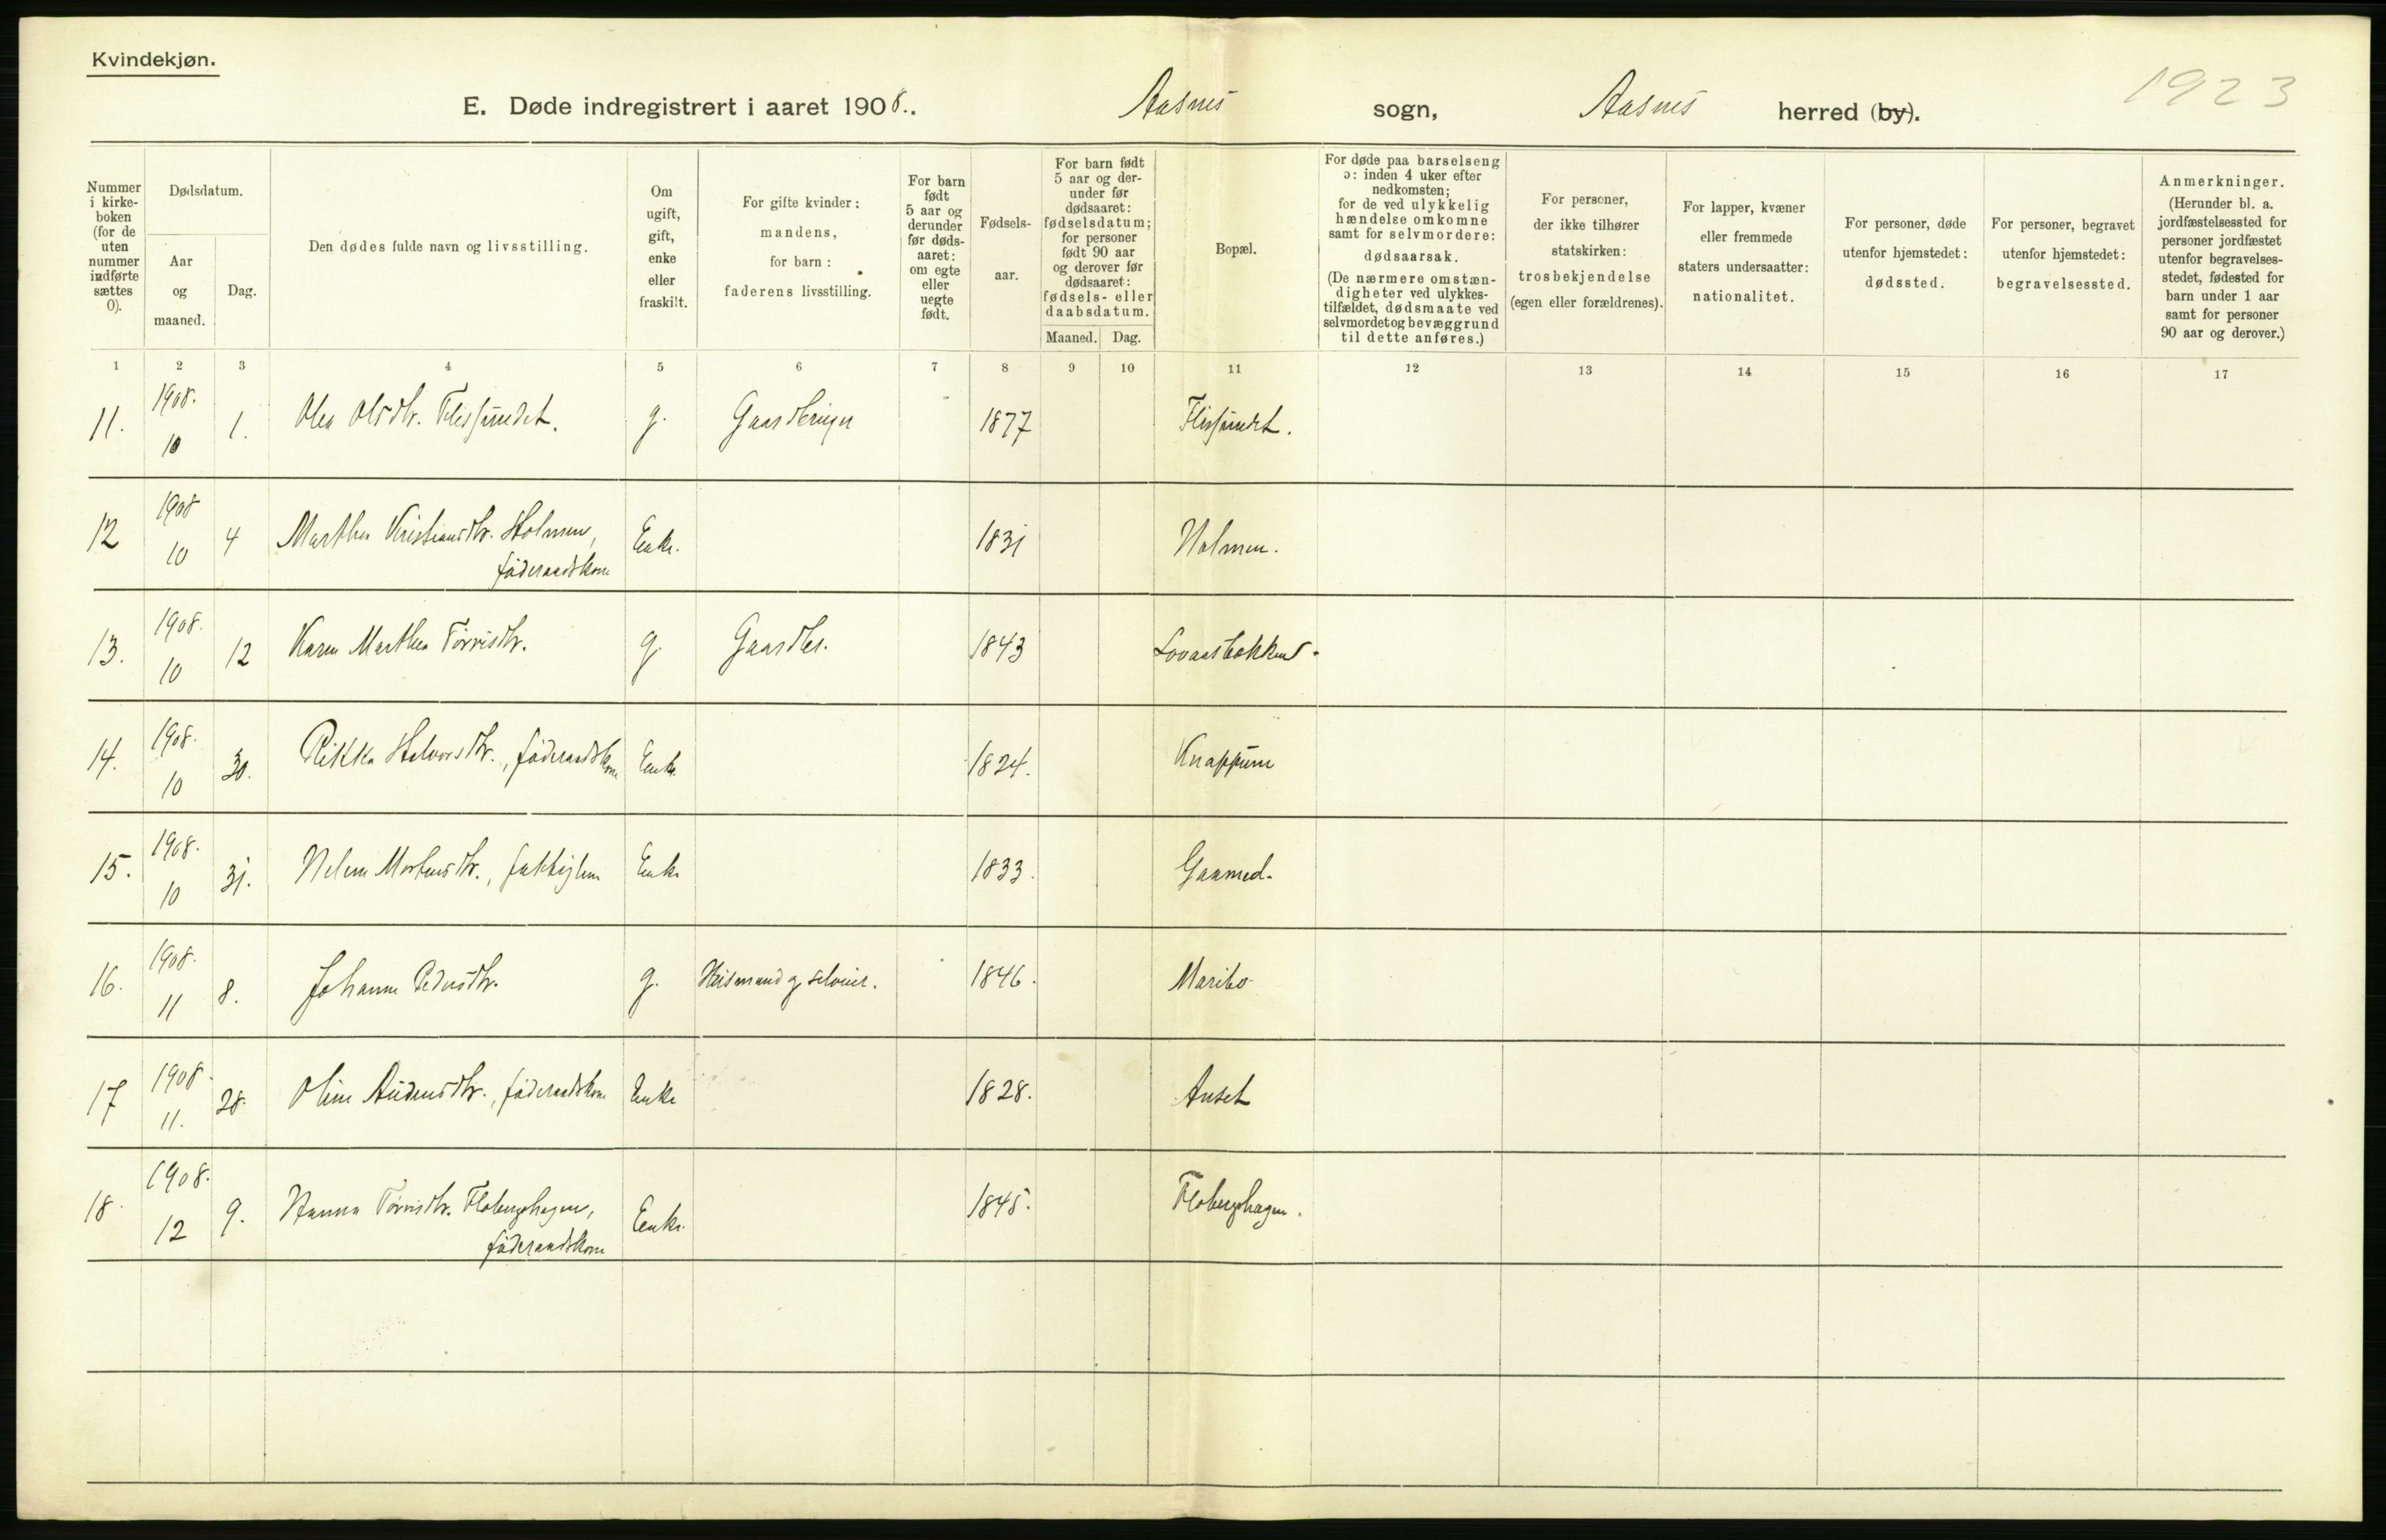 Kvindekjøn.
1923
E. Døde indregistrert i aaret 1908. Aasnes sogn, Aasnes herred (by).
Nummer i kirke-boken (for de uten nummer indførte sættes 0).
Dødsdatum.
Aar og maaned.
Dag.
Den dødes fulde navn og livsstilling.
Om ugift, gift, enke eller fraskilt.
For gifte kvinder: mandens, for barn: faderens livsstilling.
For barn født 5 aar og derunder før døds-aaret: om egte eller uegte født.
Fødsels-aar.
For barn født 5 aar og der-under før dødsaaret: fødselsdatum; for personer født 90 aar og derover før dødsaaret: fødsels- eller daabsdatum.
Maaned. Dag.
Bopæl.
For døde paa barselseng ɔ: inden 4 uker efter nedkomsten; for de ved ulykkelig hændelse omkomne samt for selvmordere: dødsaarsak. (De nærmere omstæn-digheter ved ulykkes-tilfældet, dødsmaate ved selvmordet og bevæggrund til dette anføres.)
For personer, der ikke tilhører statskirken: trosbekjendelse (egen eller forældrenes).
For lapper, kvæner eller fremmede staters undersaatter: nationalitet.
For personer, døde utenfor hjemstedet: dødssted.
For personer, begravet utenfor hjemstedet: begravelsessted.
Anmerkninger. (Herunder bl. a. jordfæstelsessted for personer jordfæstet utenfor begravelses-stedet, fødested for barn under 1 aar samt for personer 90 aar og derover.)
1 2 3 4 5 6 7 8 9 10 11 12 13 14 15 16 17
11. 1908. 10 1. Olea Olsdtr. Flissundet. g. Gaardbruger 1877 Flissundet.
12 1908 10 4 Marthea Kristiansdtr. Holmen, føderaadskone Enke. 1831 Holmen.
13. 1908. 10 12 Karen Marthea Torrisdtr. g. Gaardbr. 1843 Lovaasbakken.
14. 1908. 10 30. Rikka Halvorsdtr., føderaadskone Enke 1824. Knappum
15. 1908. 10 31. Helene Mortensdtr., fattiglem Enke 1833. Gaamed.
16. 1908. 11 8. Johanne Pedersdtr. g. Husmand og selveier. 1846. Maribo
17 1908. 11. 28. Oline Audensdtr., føderaadskone Enke 1828. Auset
18. 1908. 12 9. Hanna Torrisdtr. Flobergshagen, føderaadskone Enke. 1845. Flobergshagen.